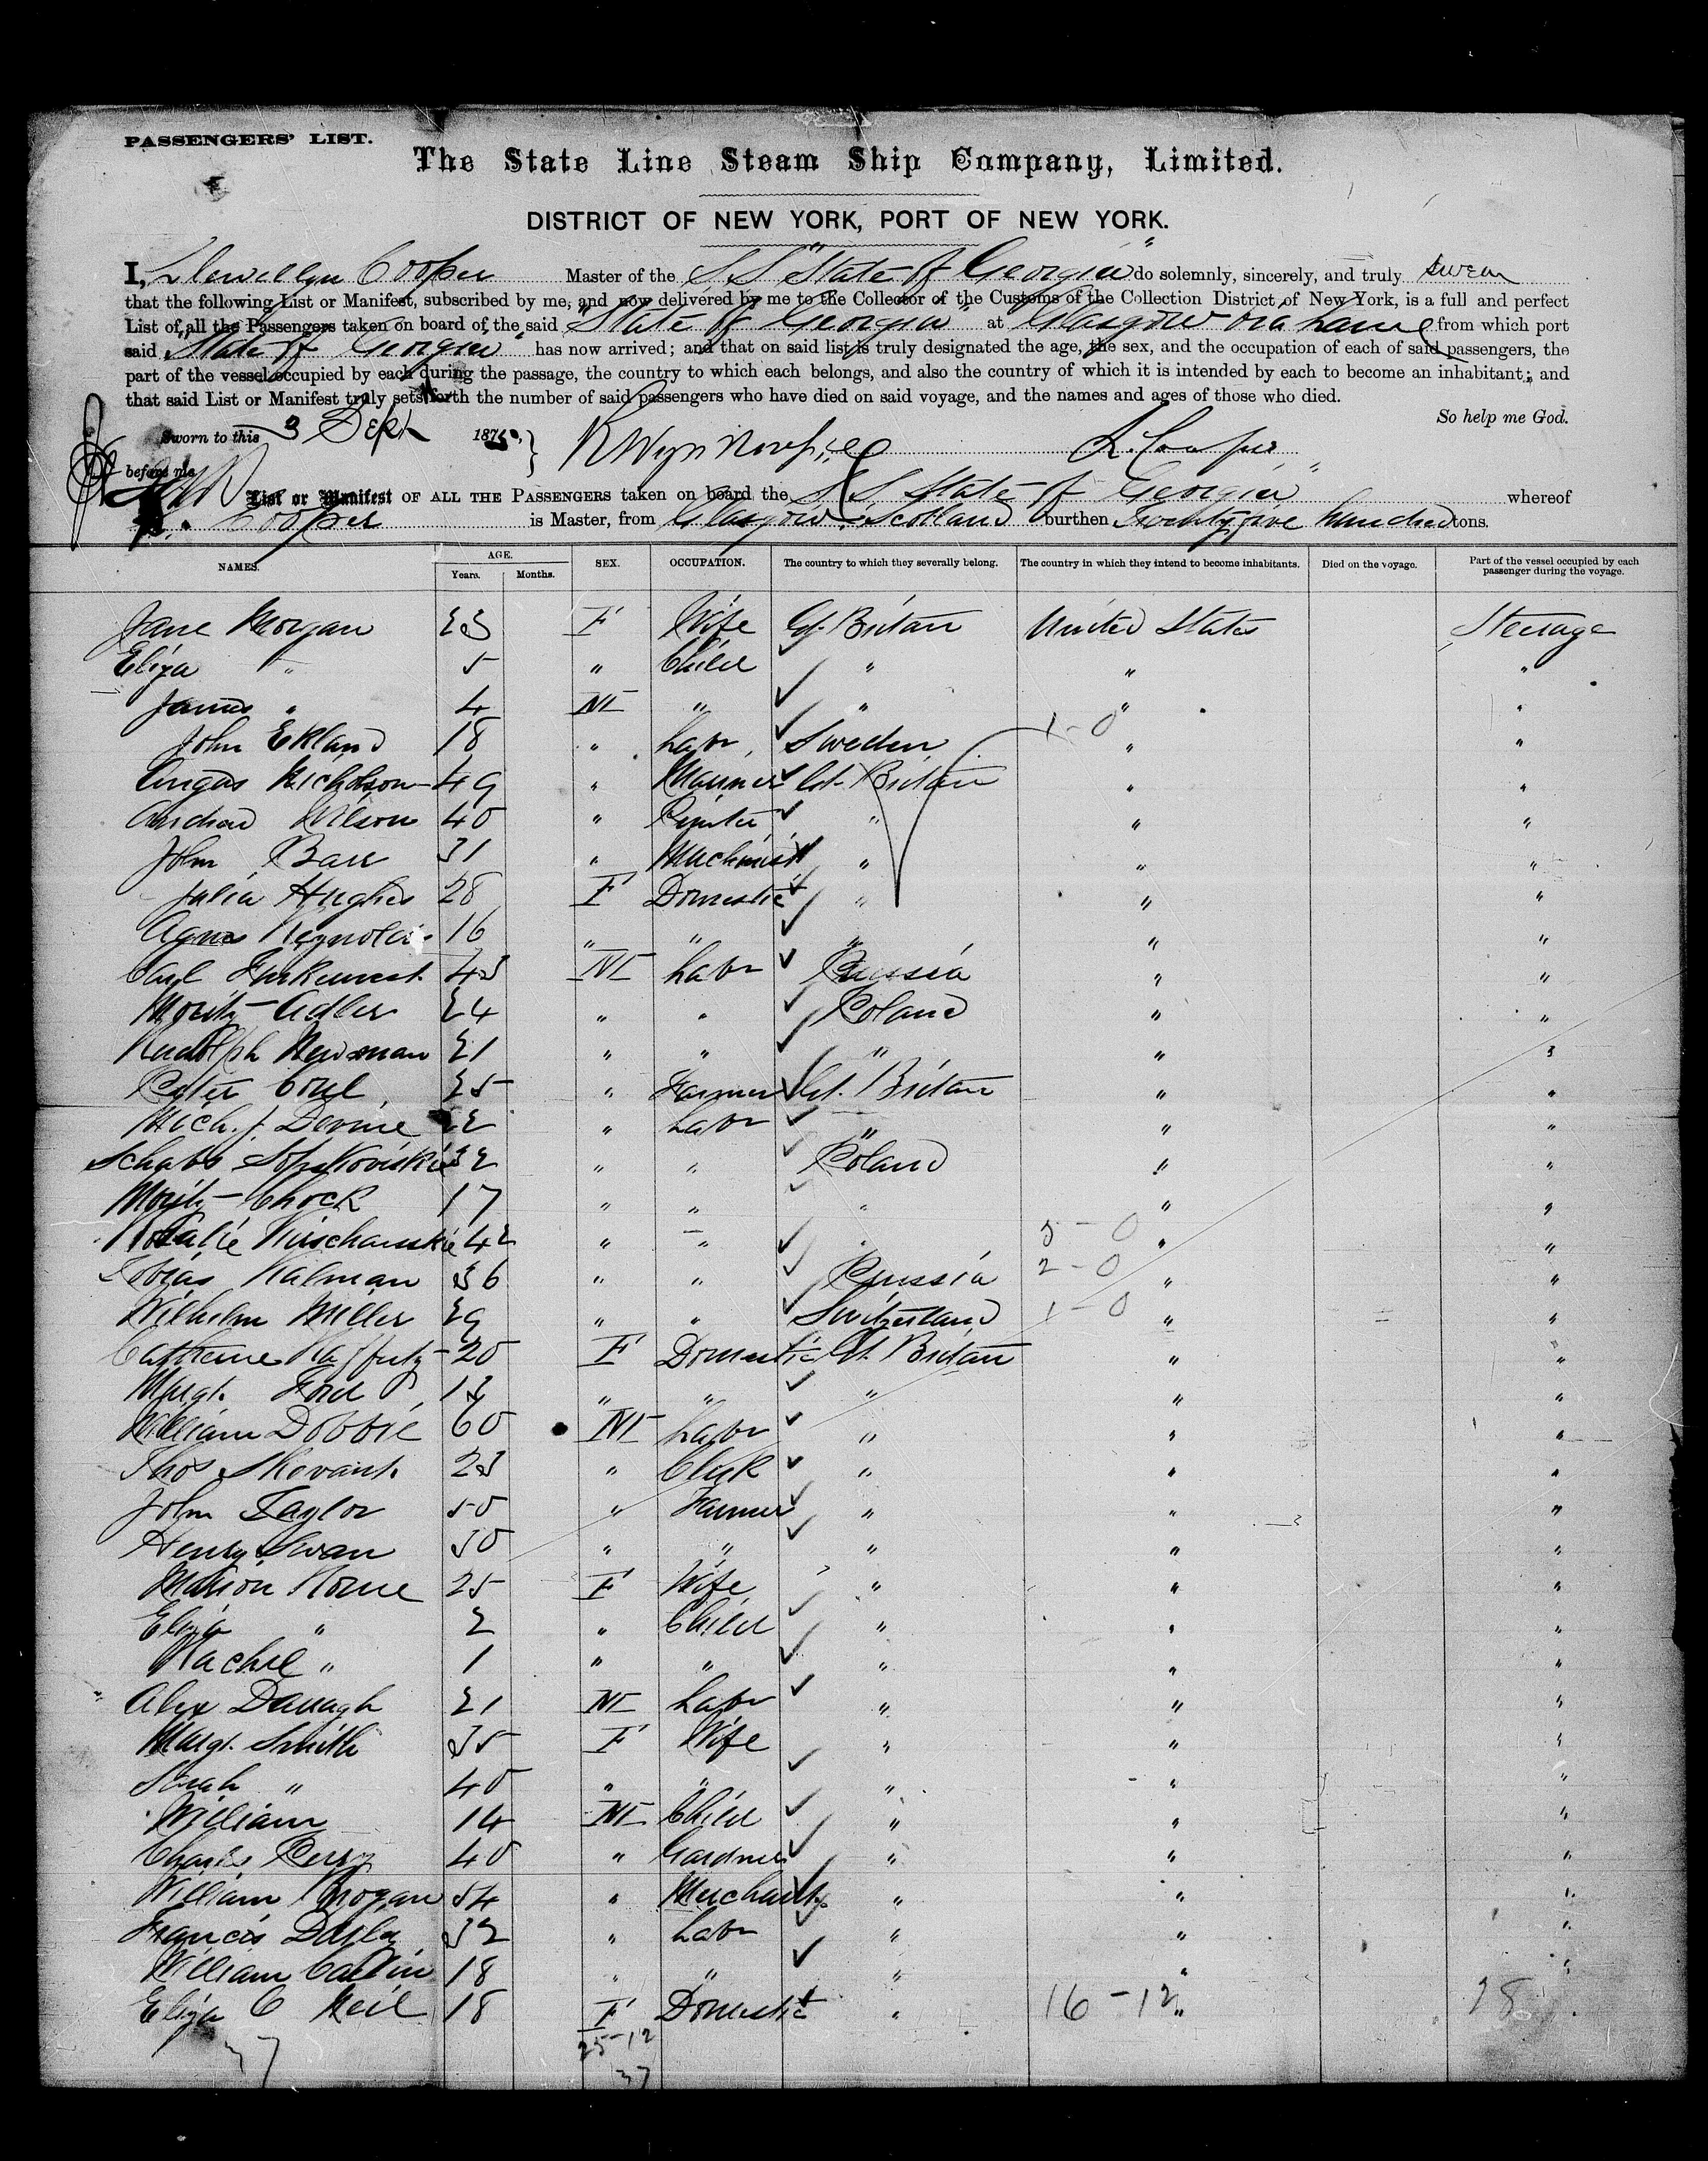 PASSENGERS' LIST.
The State Line Steam Ship Company, Limited.
DISTRICT OF NEW YORK, PORT OF NEW YORK.
I, Llewellyn Cooper Master of the S S "State of Georgia" do solemnly, sincerely, and truly swear
that the following List or Manifest, subscribed by me, and now delivered by me to the Collector of the Customs of the Collection District of New York, is a full and perfect
List of all the Passengers taken on board of the said "State of Georgia" at Glasgow via Larne from which port
said "State of Georgia" has now arrived; and that on said list is truly designated the age, the sex, and the occupation of each of said passengers, the
part of the vessel occupied by each during the passage, the country to which each belongs, and also the country of which it is intended by each to become an inhabitant; and
that said List or Manifest truly sets forth the number of said passengers who have died on said voyage, and the names and ages of those who died.
So help me God.
Sworn to this 3 Sept 187
L. Cooper
before me
List or Manifest OF ALL THE PASSENGERS taken on board the S S State of Georgia whereof
L. Cooper is Master, from Glasgow Scotland burthen Twenty five hundred tons.
NAMES. AGE. Years. Months. SEX. OCCUPATION. The country to which they severally belong. The country in which they intend to become inhabitants. Died on the voyage. Part of the vessel occupied by each passenger during the voyage.
Jane Morgan 23 F Wife Gt. Britain United States Steerage
Eliza " 5 " Child " " "
James " 4 M " " " "
John Ekland 18 " Labr. Sweden 1-0 " "
Angus Nicholson 49 " Mariner Gt. Britain " "
Andrew Wilson 40 " " " "
John Barr 31 " Machinist " " "
Julia Hughes 28 F Domestic " " "
Agnes Reynolds 16 " " " " "
Carl 43 M Labr Prussia " "
Moritz Adler 24 " " Poland " "
Rudolph Newman 21 " " " " "
Peter 25 " Farmer Gt. Britain " "
Mich. J. Devine 22 " Labr " " "
32 " " Poland " "
Moritz Chock 17 " " " " "
Rosalie 42 " " " 5-0 " "
Tobias Kalman 36 " " Prussia 2-0 " "
Wilhelm Miller 29 " " Switzerland 1-0 " "
Catherine Rafferty 20 F Domestic Gt. Britain " "
Margt. Ford " " " " "
William Dobbie 60 M Labr " " "
Thos. 23 " Clerk " " "
John Taylor 50 " Farmer " " "
Henry Swan 50 " " " " "
Marion Rome 25 F Wife " " "
Eliza " 2 " Child " " "
Rachel " 1 " " " " "
Alex Darragh 21 M Labr " " "
Margt. Smith 35 F Wife " " "
Sarah " 40 " " " " "
William 14 M Child " " "
Charles Perry 40 " Gardner " " "
William Brogan 54 " Merchant " " "
Francis 32 " Labr " " "
William Catlin 18 " " " " "
Eliza O Neil 18 F Domestic " 16-12 " 28
25-12
37 37